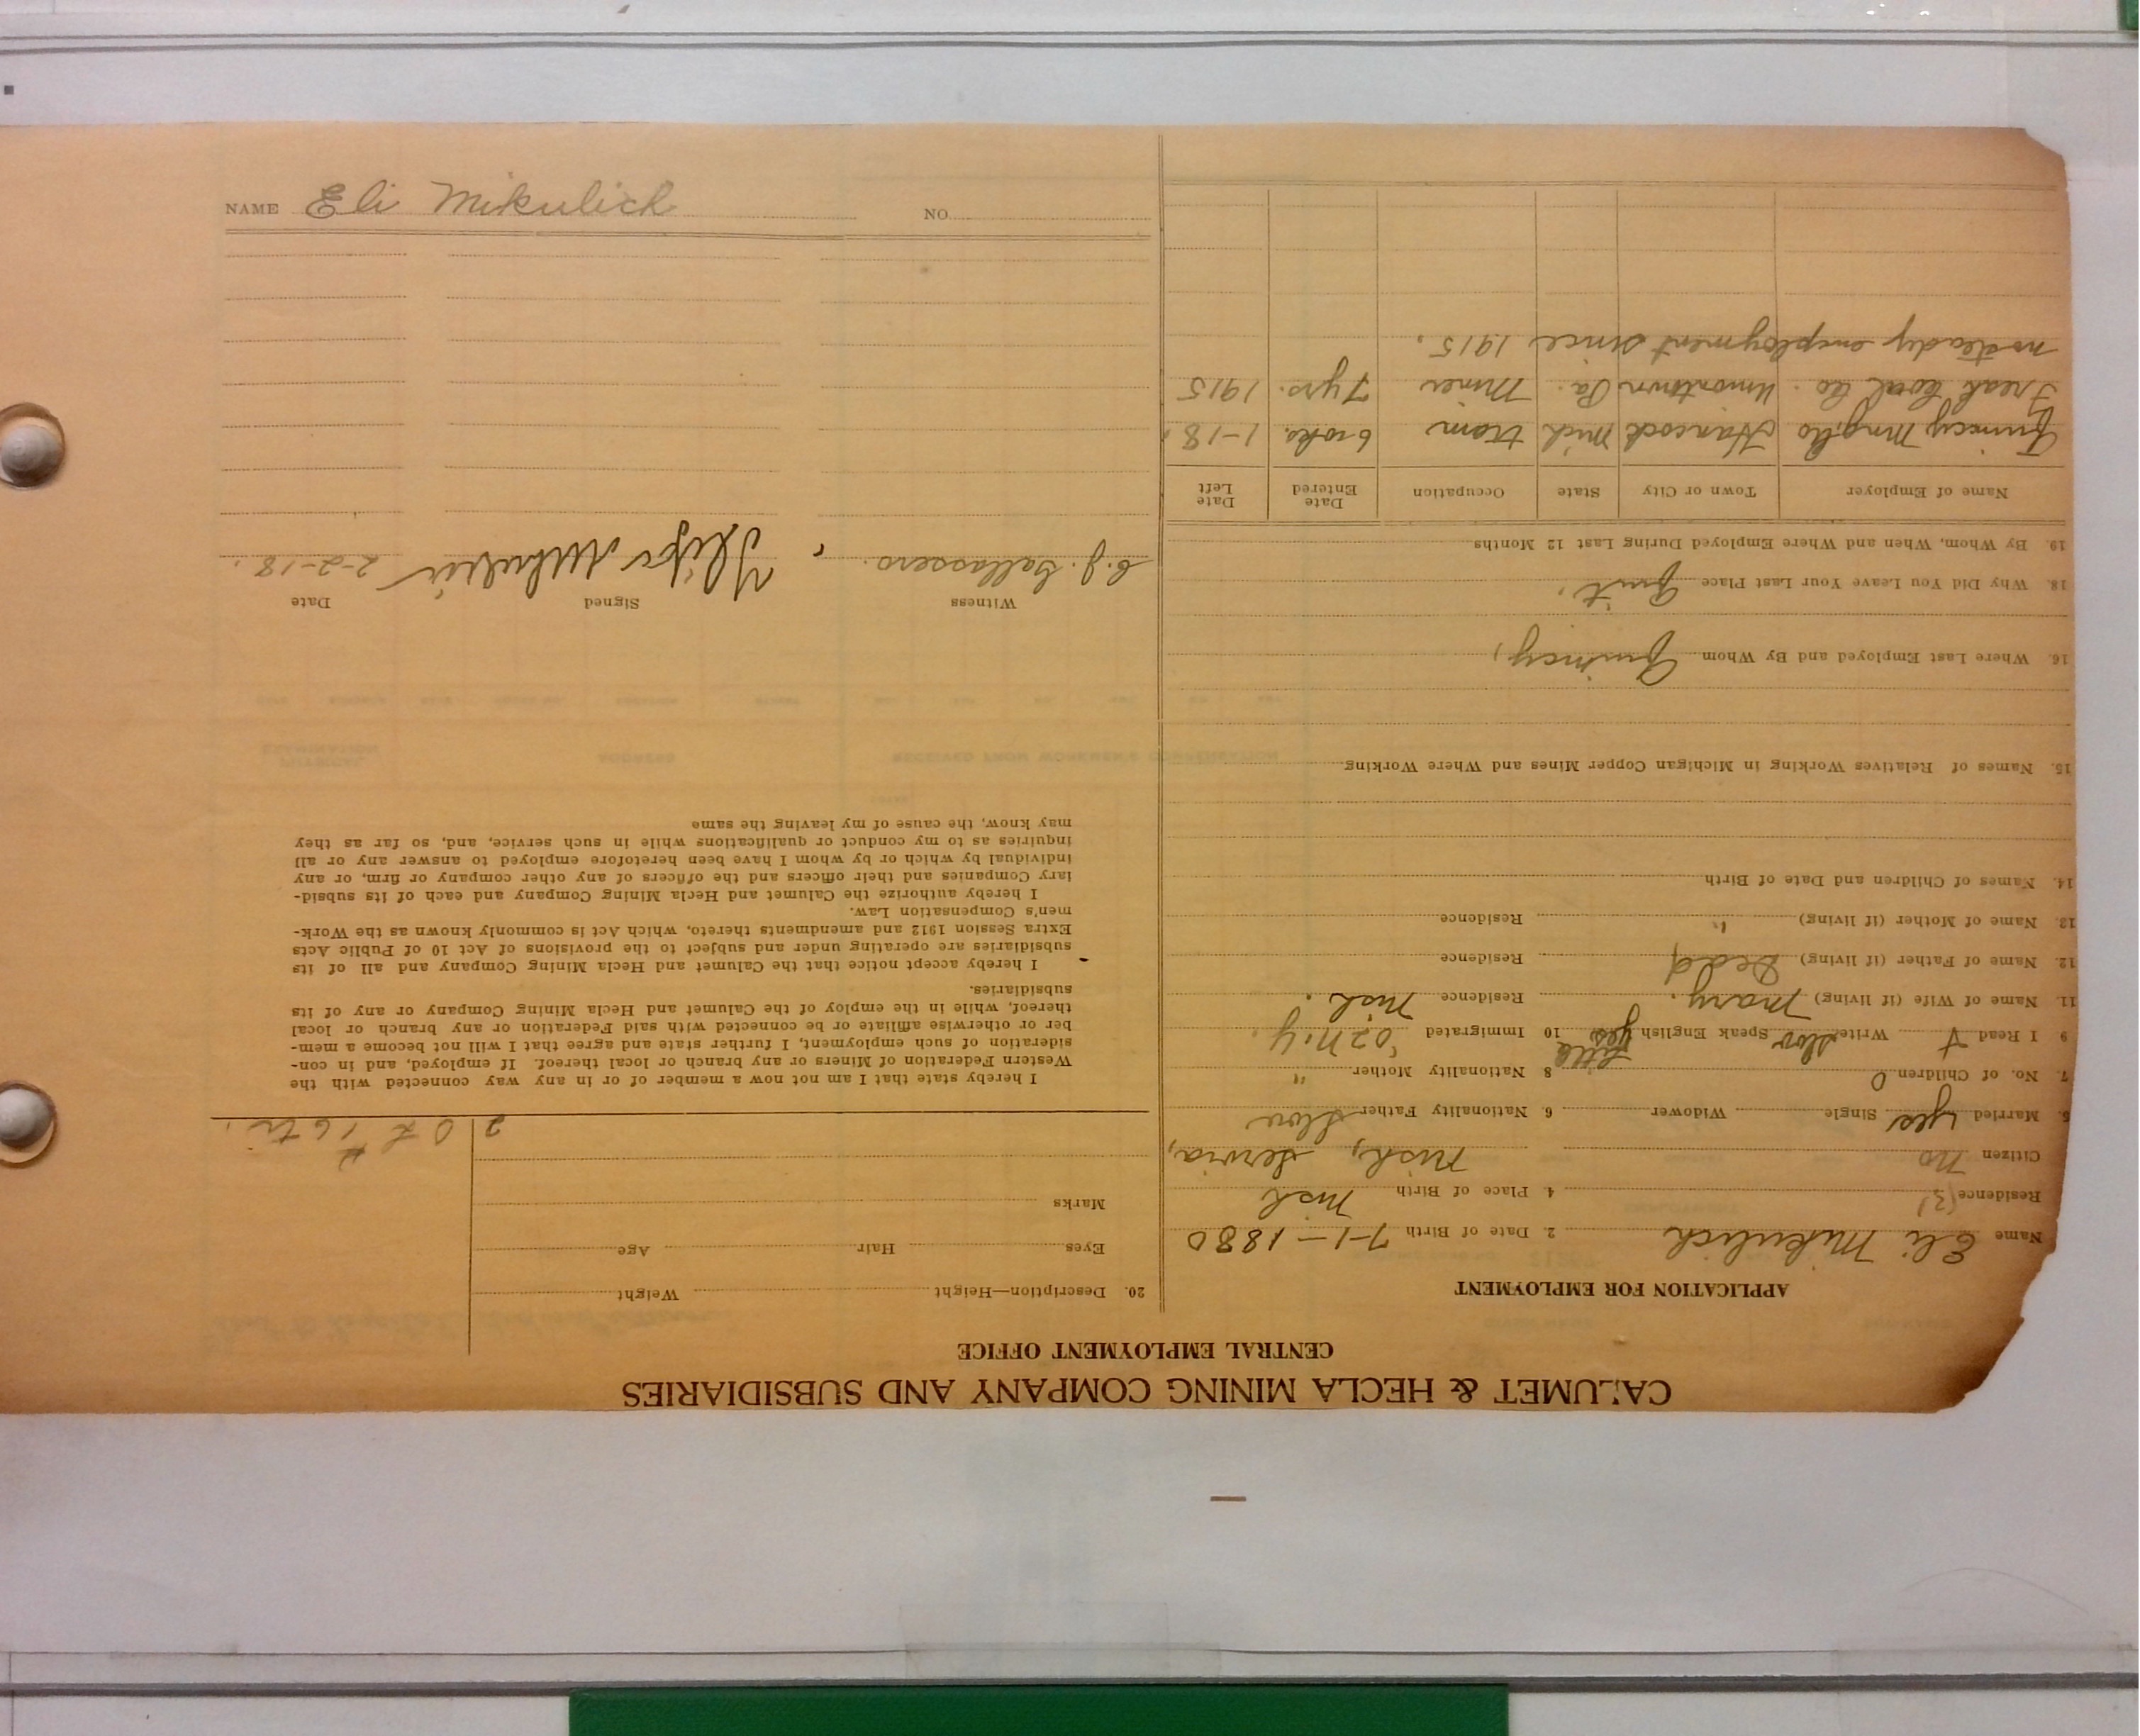 CALUMET & HECLA MINING COMPANY AND SUBSIDIARIES
CENTRAL EMPLOYMENT OFFICE
APPLICATION FOR EMPLOYMENT
Name Eli Mikulich 2. Date of Birth 7-1-1880
Residence 4. Place of Birth Nish
Citizen no Nish, Servia,
5. Married yes Single Widower 6. Nationality Father Slov
7. No. of Children 0 8 Nationality Mother "
9 I Read Write Slov Speak English Little yes 10 Immigrated '02 N.Y.
11. Name of Wife (if living) Mary. Residence Nish.
12. Name of Father (if living) Dead Residence
13. Name of Mother (if living) " Residence
14. Names of Children and Date of Birth
15. Names of Relatives Working in Michigan Copper Mines and Where Working
16. Where Last Employed and By Whom Quincy,
18. Why Did You Leave Your Last Place Quit,
19. By Whom, When and Where Employed During Last 12 Months
Name of Employer Town or City State Occupation Date Entered Date Left
Quincy Mng. Co Hancock Mich tram 6 wks. 1-18,
Coal Co. Uniontown Pa. Miner 7 yrs. 1915
no steady employment since 1915.
20. Description—Height Weight
Eyes Hair Age
Marks
I hereby state that I am not now a member of or in any way connected with the
Western Federation of Miners or any branch or local thereof. If employed, and in con-
sideration of such employment, I further state and agree that I will not become a mem-
ber or otherwise affiliate or be connected with said Federation or any branch or local
thereof, while in the employ of the Calumet and Hecla Mining Company or any of its
subsidiaries.
I hereby accept notice that the Calumet and Hecla Mining Company and all of its
subsidiaries are operating under and subject to the provisions of Act 10 of Public Acts
Extra Session 1912 and amendments thereto, which Act is commonly known as the Work-
men's Compensation Law.
I hereby authorize the Calumet and Hecla Mining Company and each of its subsid-
iary Companies and their officers and the officers of any other company or firm, or any
individual by which or by whom I have been heretofore employed to answer any or all
inquiries as to my conduct or qualifications while in such service, and, so far as they
may know, the cause of my leaving the same
Witness Signed Date
2-2-18.
NAME Eli Mikulich NO.